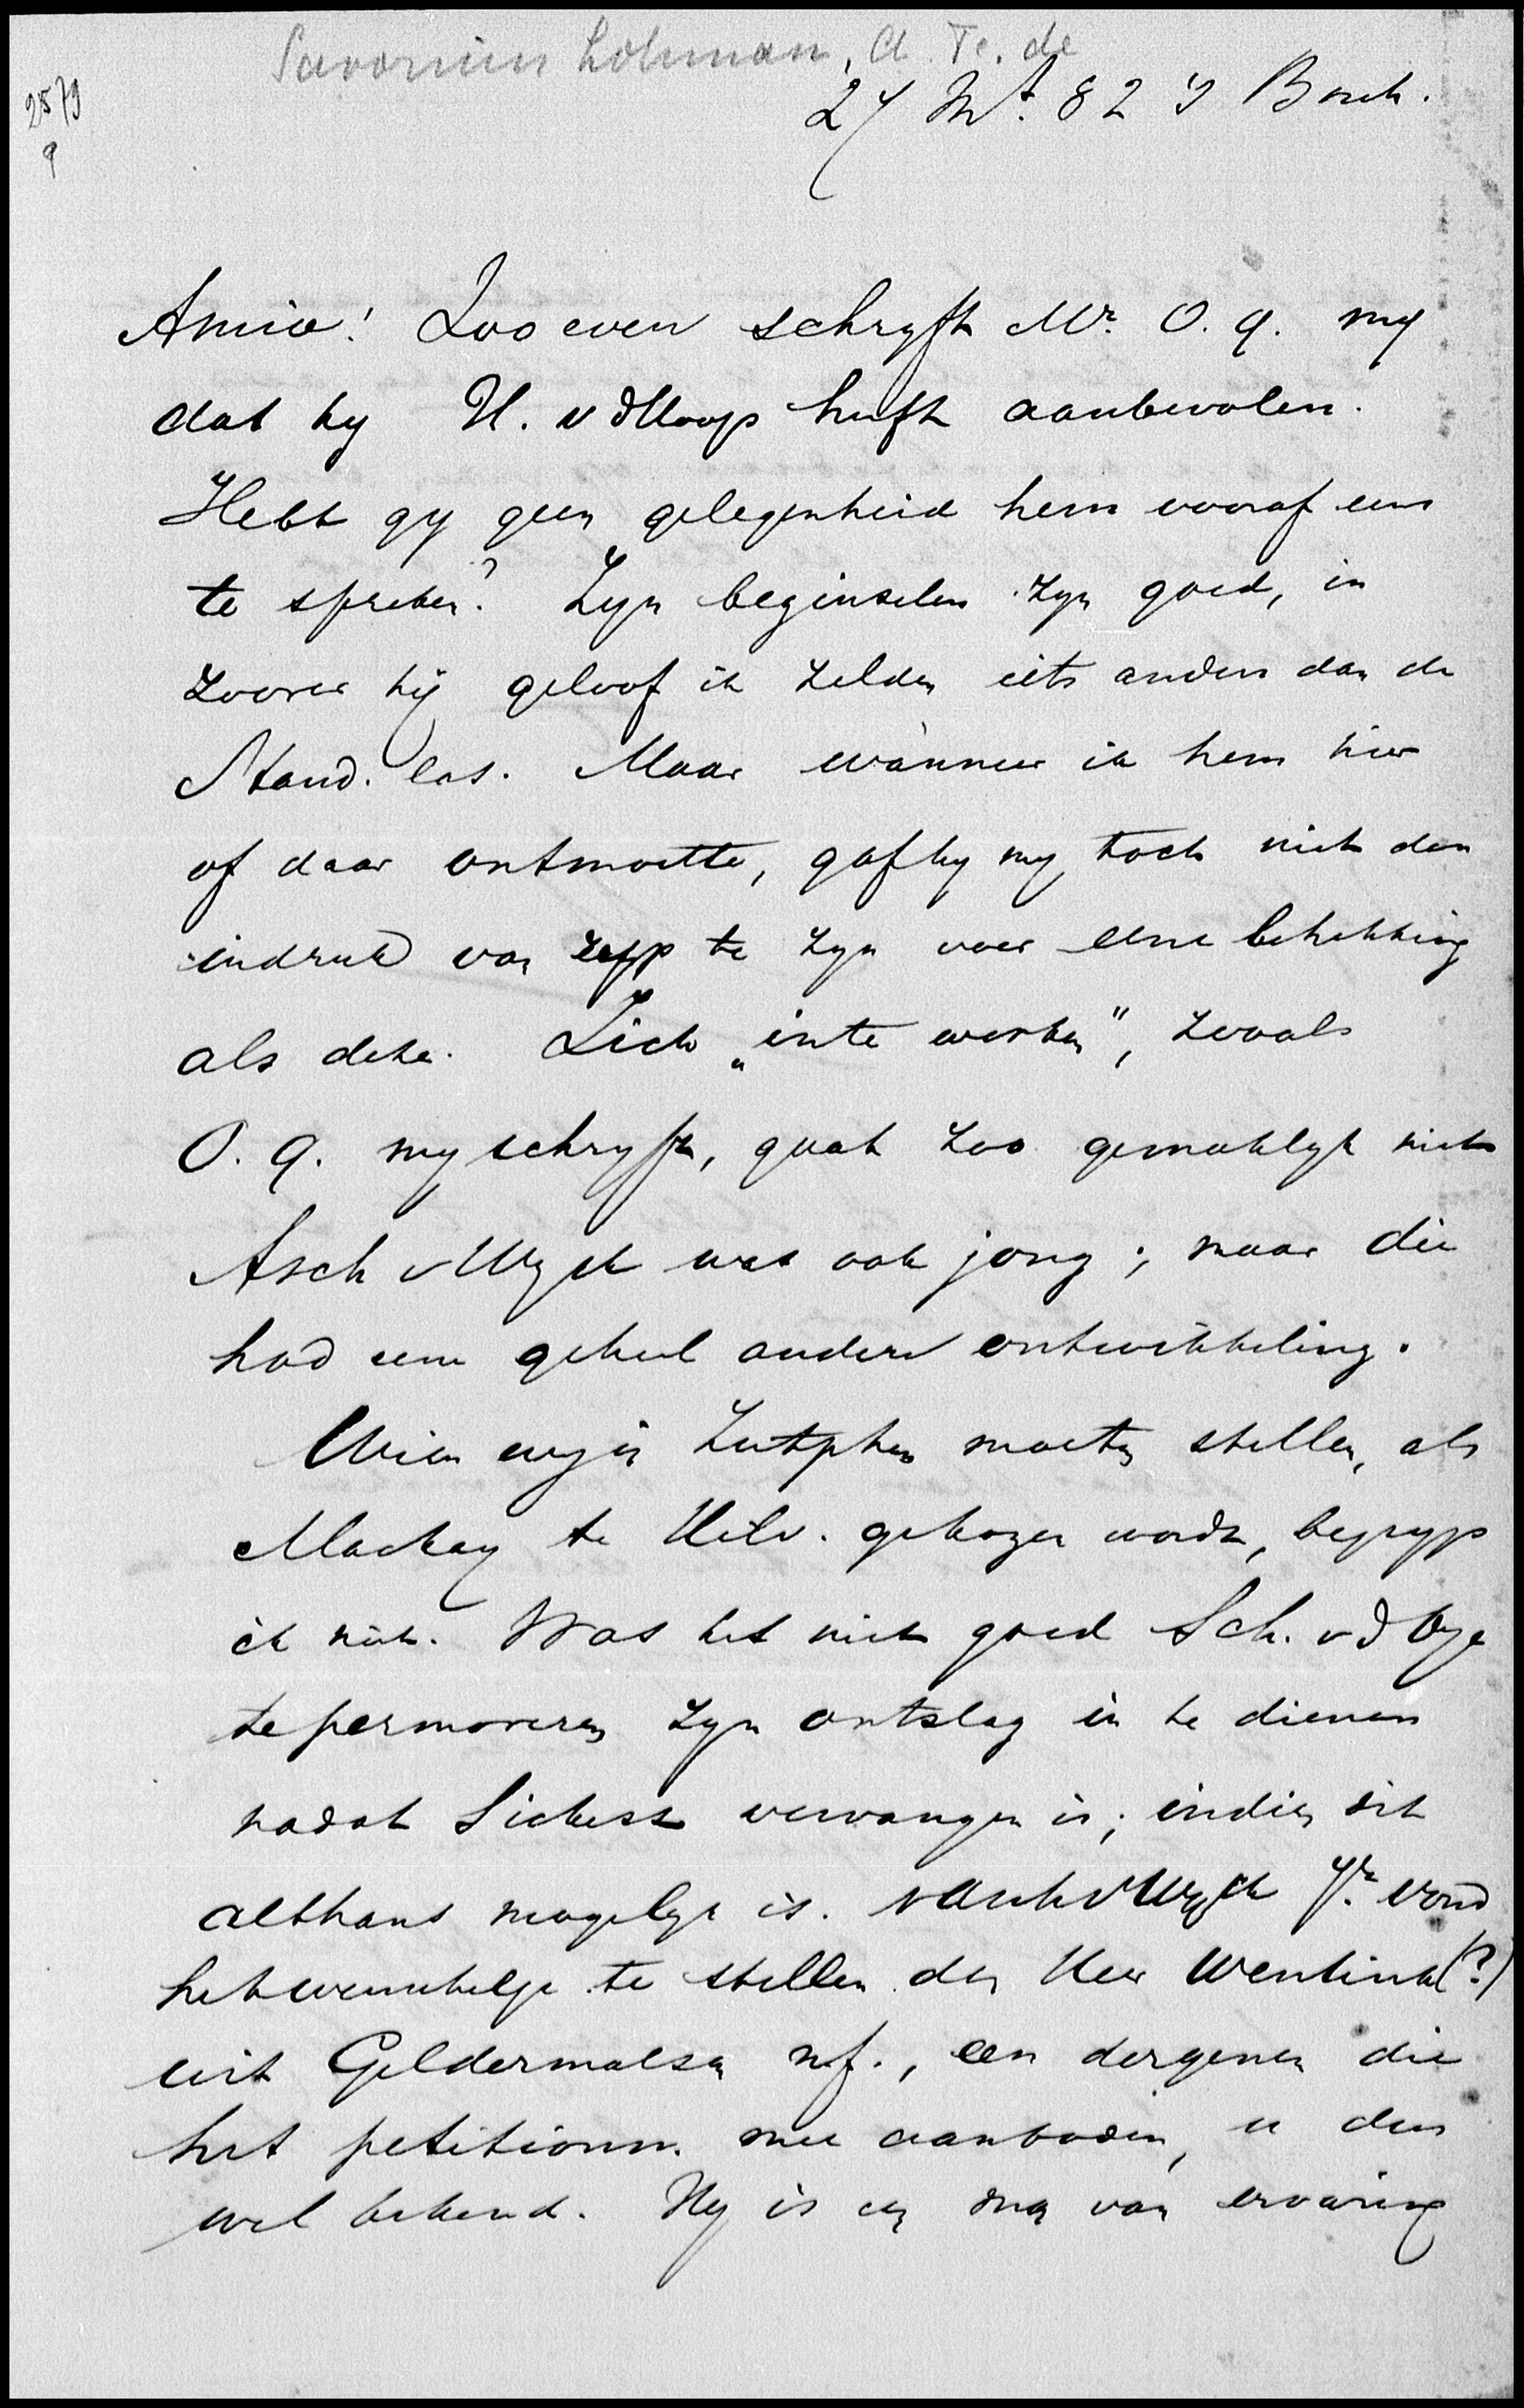 Savornin Lohman, A. F. de
2579
9
27 Mt. 82 's Bosch.
Amice! Zoo even schryft Mr. O. q. my
dat hy H. vd Hoop heeft aanbevolen.
Hebt gy geen gelegenheid hem vooraf eens
te spreken? Zyn beginselen zyn goed, in
zoover hij geloof ik zelden iets anders dan de
Stand. las. Maar wanneer ik hem hier
of daar ontmoette, gaf hy my toch niet den
indruk van ryp te zyn voor eene betrekking
als deze. Zich "in te werken", zooals
O. q. my schryft, gaat zoo gemaklyk niet
Asch v Wyck was ook jong; maar die
had eene geheel andere ontwikkeling.
Wien wy in Zutphen moeten stellen, als
Mackay te Utr. gekozen wordt, begryp
ik niet. Was het niet goed Sch. vd Oye
te permoveren zyn ontslag in te dienen
nadat Sickesz vervangen is; indien dit
althans mogelyk is. v Asch v Wyck Jr. vond
het wenschelyk te stellen den Heer Wentink(?)
uit Geldermalsen nf., een dergenen die
het petitionn. mee aanboden, u dus
wel bekend. Hy is een man van ervaring